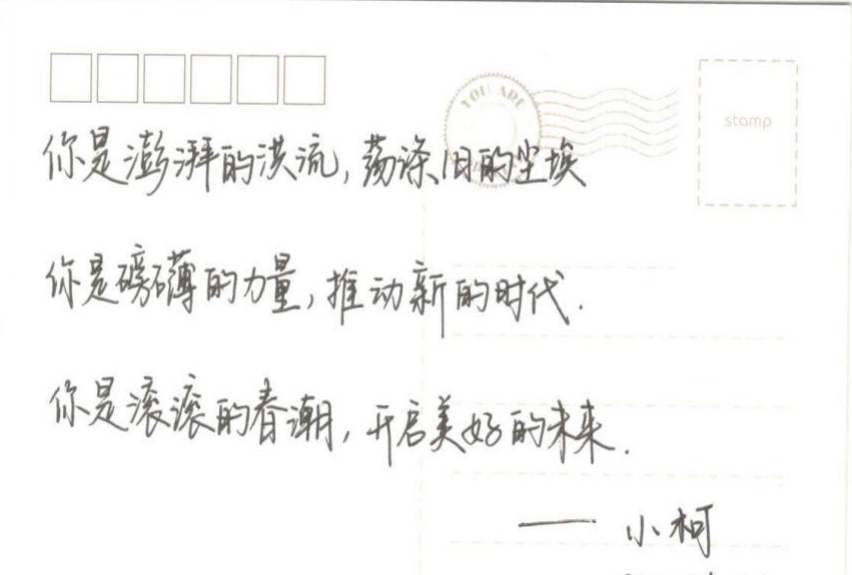 YOU ARE
stamp
你是澎湃的洪流,荡涤旧的尘埃
你是磅礴的力量,推动新的时代.
你是滚滚的春潮,开启美好的未来.
—— 小柯